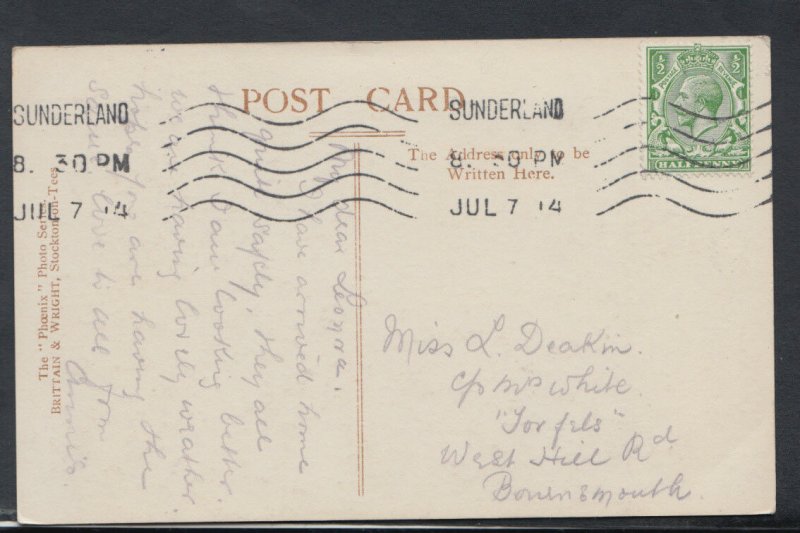 POST CARD
SUNDERLAND
8. 30 PM
JUL 7 14
SUNDERLAND
8. 30 PM
JUL 7 14
½ ½
HALFPENNY
The Address only to be
Written Here.
The "Phœnix" Photo Series.
BRITTAIN & WRIGHT, Stockton-on-Tees.
My dear Leonora.
I have arrived home
quite safely, they all
think I am looking better.
we are having lovely weather.
hope you are having the
same love to all from
Annie.
Miss L. Deakin.
c/o Mrs White.
West Hill Rd
Bournemouth.